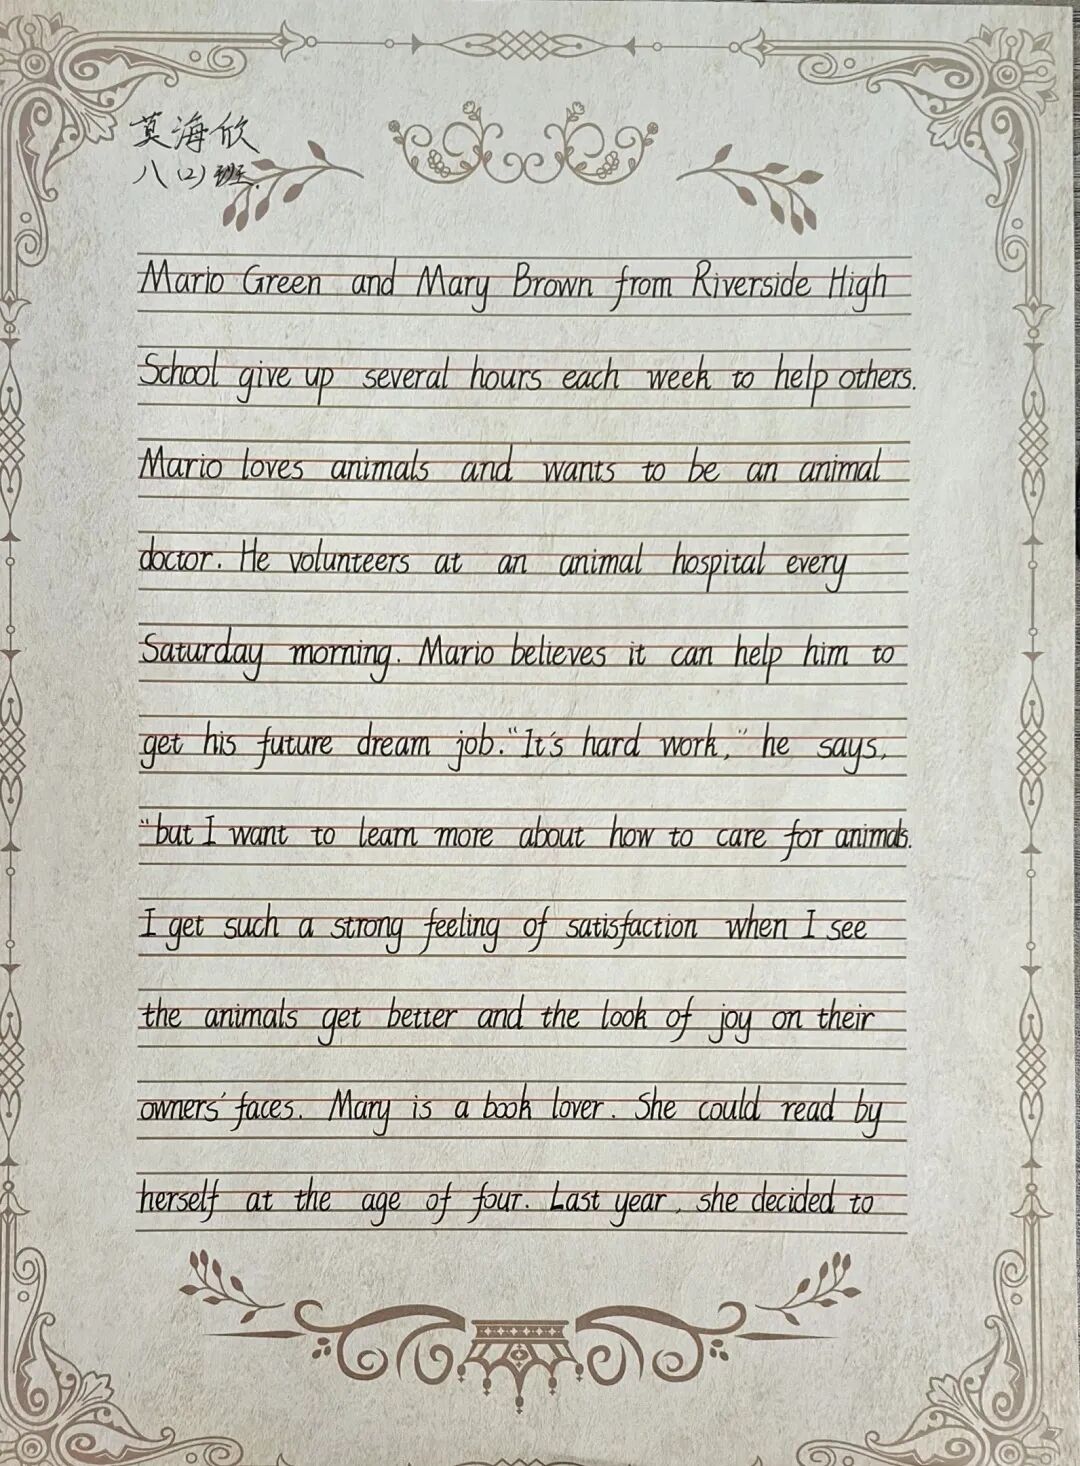 莫海欣
八(2)班.
Mario Green and Mary Brown from Riverside High
School give up several hours each week to help others.
Mario loves animals and wants to be an animal
doctor. He volunteers at an animal hospital every
Saturday morning. Mario believes it can help him to
get his future dream job. "It's hard work," he says,
"but I want to learn more about how to care for animals.
I get such a strong feeling of satisfaction when I see
the animals get better and the look of joy on their
owners' faces. Mary is a book lover. She could read by
herself at the age of four. Last year, she decided to